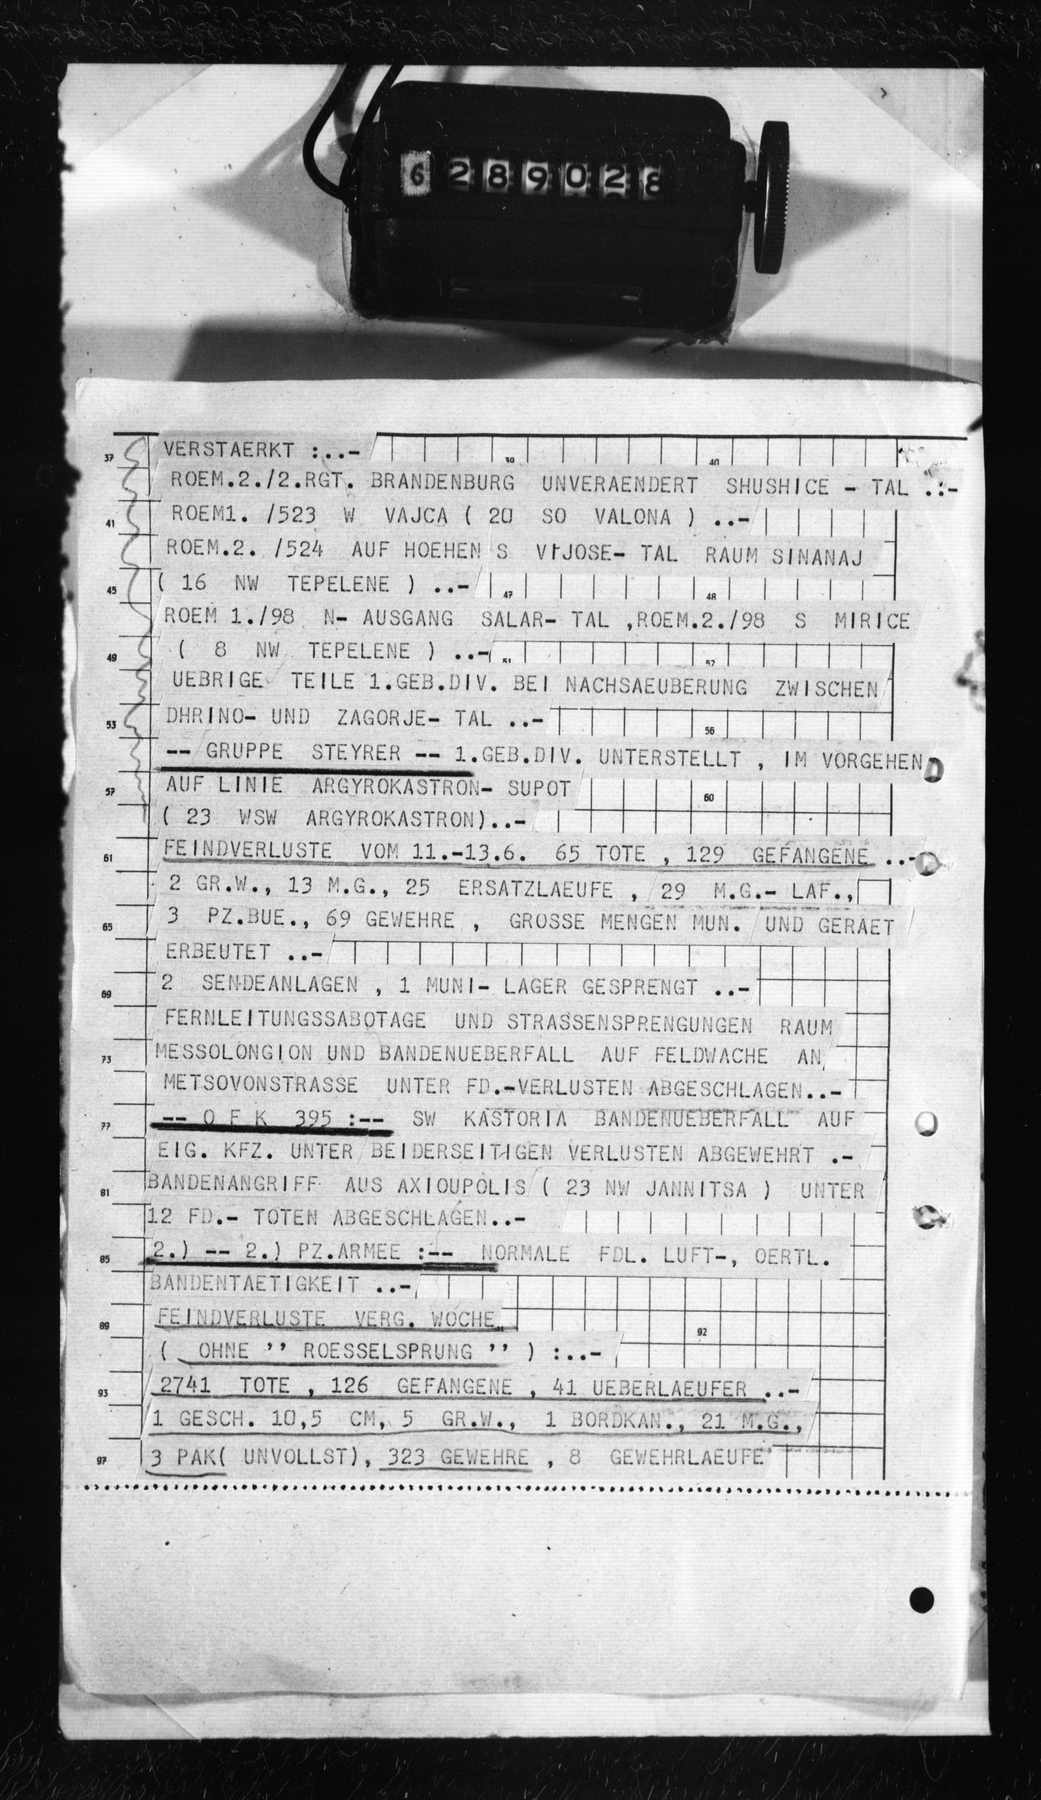 6289028
VERSTAERKT :..-
39 40
37
ROEM.2./2.RGT. BRANDENBURG UNVERAENDERT SHUSHICE - TAL .:-
41 ROEM1. /523 W VAJCA ( 20 SO VALONA ) ..-
ROEM.2. /524 AUF HOEHEN S VIJOSE- TAL RAUM SINANAJ
45 ( 16 NW TEPELENE ) ..- 47 48
ROEM 1./98 N- AUSGANG SALAR- TAL ,ROEM.2./98 S MIRICE
49 ( 8 NW TEPELENE ) ..- 51 52
UEBRIGE TEILE 1.GEB.DIV. BEI NACHSAEUBERUNG ZWISCHEN
53 DHRINO- UND ZAGORJE- TAL ..- 56
-- GRUPPE STEYRER -- 1.GEB.DIV. UNTERSTELLT , IM VORGEHEN
57 AUF LINIE ARGYROKASTRON- SUPOT 60
( 23 WSW ARGYROKASTRON)..-
61 FEINDVERLUSTE VOM 11.-13.6. 65 TOTE , 129 GEFANGENE ..-
2 GR.W., 13 M.G., 25 ERSATZLAEUFE , 29 M.G.- LAF.,
65 3 PZ.BUE., 69 GEWEHRE , GROSSE MENGEN MUN. UND GERAET
ERBEUTET ..-
69 2 SENDEANLAGEN , 1 MUNI- LAGER GESPRENGT ..-
FERNLEITUNGSSABOTAGE UND STRASSENSPRENGUNGEN RAUM
73 MESSOLONGION UND BANDENUEBERFALL AUF FELDWACHE AN
METSOVONSTRASSE UNTER FD.-VERLUSTEN ABGESCHLAGEN..-
77 -- O F K 395 :-- SW KASTORIA BANDENUEBERFALL AUF
EIG. KFZ. UNTER BEIDERSEITIGEN VERLUSTEN ABGEWEHRT .-
81 BANDENANGRIFF AUS AXIOUPOLIS ( 23 NW JANNITSA ) UNTER
12 FD.- TOTEN ABGESCHLAGEN..-
85 2.) -- 2.) PZ.ARMEE :-- NORMALE FDL. LUFT-, OERTL.
BANDENTAETIGKEIT ..-
89 FEINDVERLUSTE VERG. WOCHE 92
( OHNE '' ROESSELSPRUNG '' ) :..-
93 2741 TOTE , 126 GEFANGENE , 41 UEBERLAEUFER ..-
1 GESCH. 10,5 CM, 5 GR.W., 1 BORDKAN., 21 M.G.,
97 3 PAK( UNVOLLST), 323 GEWEHRE , 8 GEWEHRLAEUFE